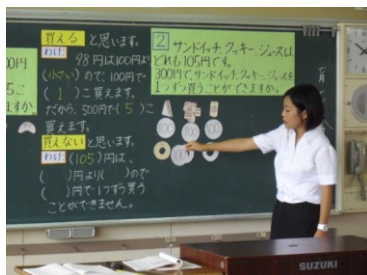 買える と思います。
わけ: 98円は100円より
(小さい)ので、100円で
(1)こ買えます。
だから、500円で(5)こ
買えます。
買えない と思います。
わけ: (105)円は、
( )円より( )ので
( )円で1つずつ買う
ことができません。
2 サンドイッチ、クッキー、ジュースは
どれも105円です。
300円で、サンドイッチ、クッキー、ジュースを
1つずつ買うことができますか。
100
100
100
SUZUKI